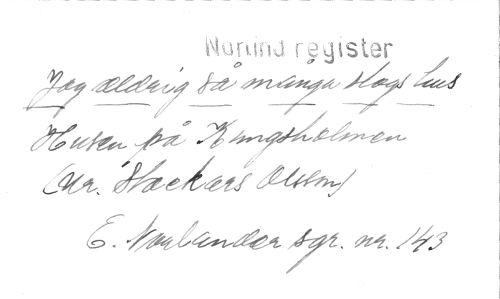 Norlind register
Jag aldrig så många slags hus
Husen på Kungsholmen
(Ur. Stackars Olsson)
E. Norlander sgr. nr. 143